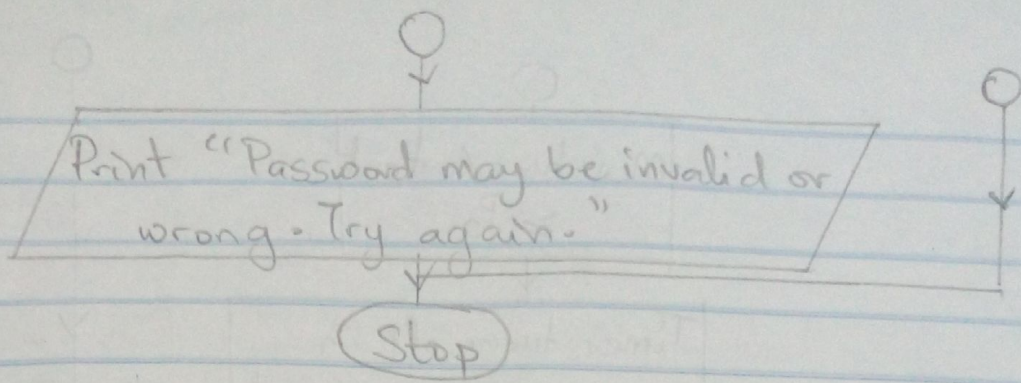 Print "Password may be invalid or
wrong. Try again."
Stop